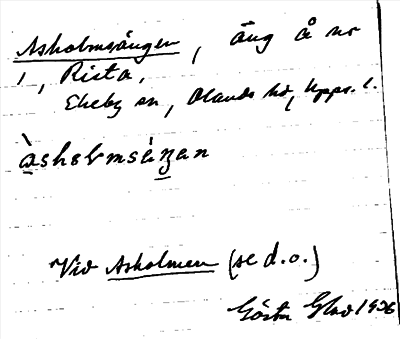 Asholmsängen, äng å nr
1, Rista,
Ekeby sn, Olands hd, Upps. l.
àsholmsàŋan
Vid Asholmen (se d.o.)
Gösta 1926